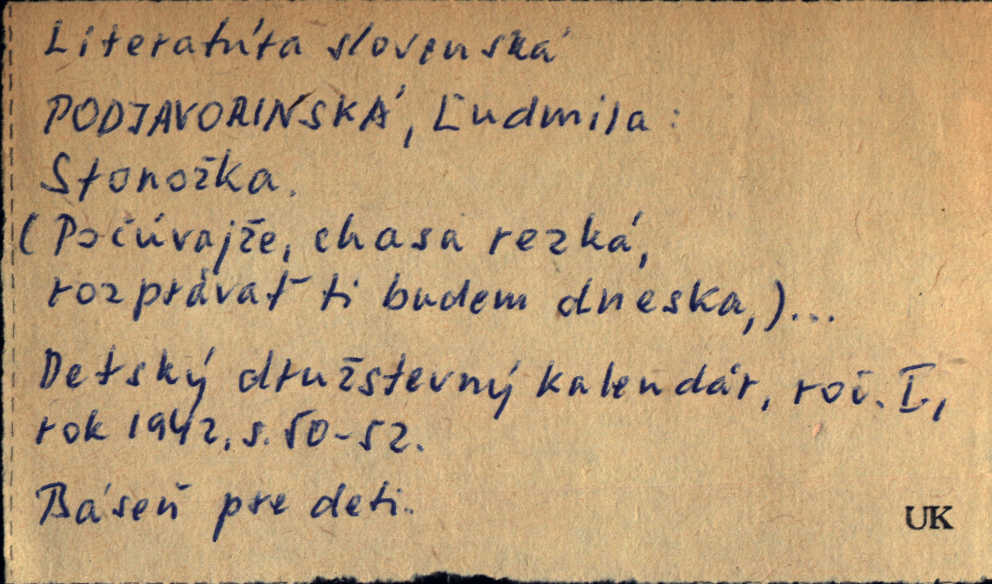 Literatúra slovenská
PODJAVORINSKÁ, Ľudmila:
Stonožka.
(Počúvajže, chasa rezká,
rozprávať ti budem dneska,)...
Detský družstevný kalendár, roč. I,
rok 1942, s. 50-52.
Báseň pre deti.
UK